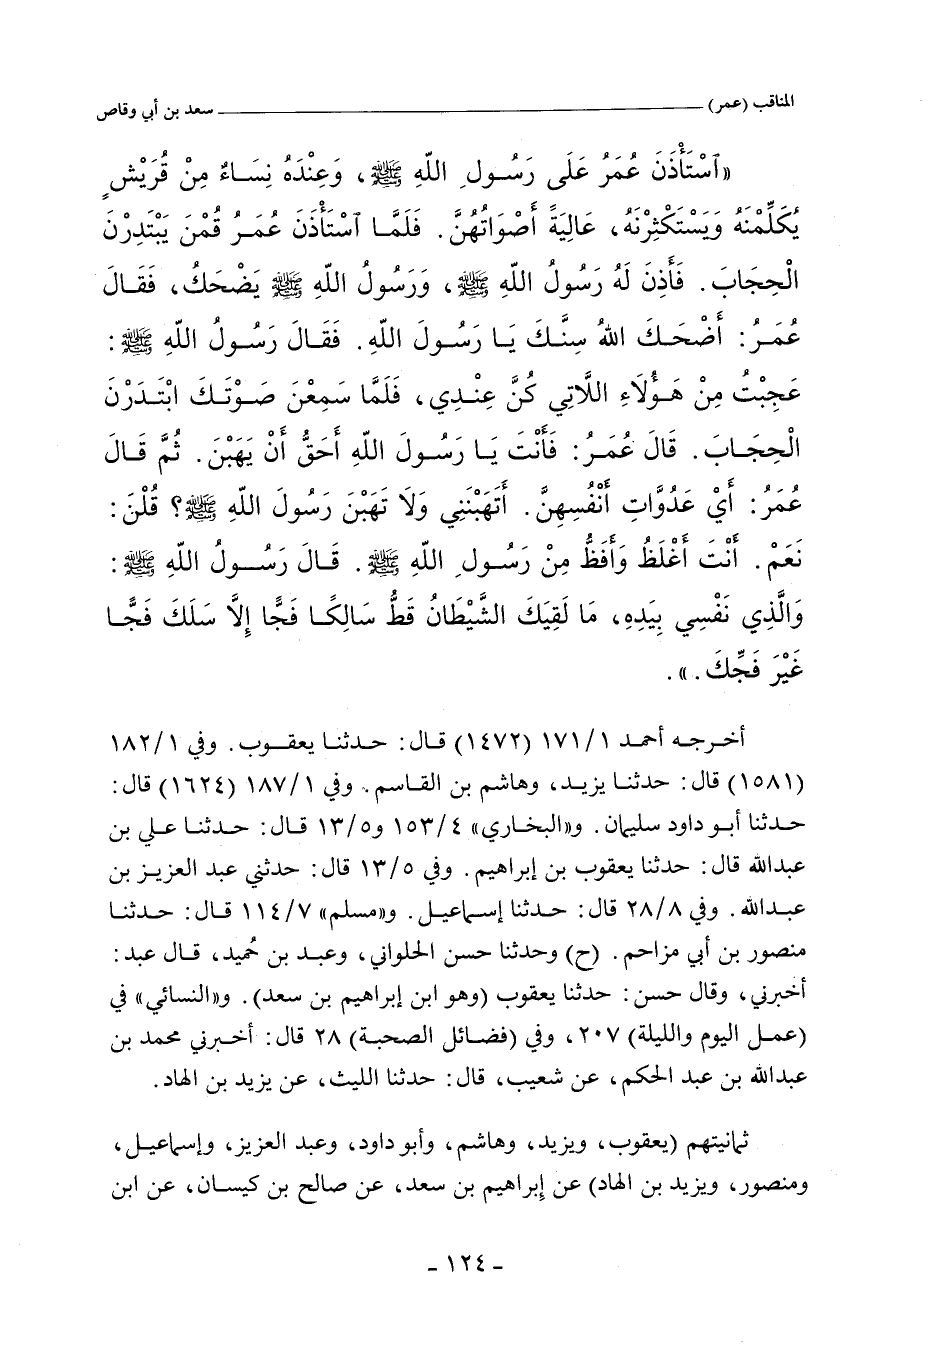 المناقب (عمر) ــــــــــ سعد بن أبي وقاص
«ٱسْتَأْذَنَ عُمَرُ عَلَى رَسُولِ اللّهِ ﷺ، وَعِنْدَهُ نِسَاءٌ مِنْ قُرَيْشٍ
يُكَلِّمْنَهُ وَيَسْتَكْثِرْنَهُ، عَالِيَةً أَصْوَاتُهُنَّ. فَلَمَّا ٱسْتَأْذَنَ عُمَرُ قُمْنَ يَبْتَدِرْنَ
الْحِجَابَ. فَأَذِنَ لَهُ رَسُولُ اللّهِ ﷺ، وَرَسُولُ اللّهِ ﷺ يَضْحَكُ، فَقَالَ
عُمَرُ: أَضْحَكَ اللّهُ سِنَّكَ يَا رَسُولَ اللّهِ. فَقَالَ رَسُولُ اللّهِ ﷺ:
عَجِبْتُ مِنْ هَؤُلَاءِ اللَّاتِي كُنَّ عِنْدِي، فَلَمَّا سَمِعْنَ صَوْتَكَ ابْتَدَرْنَ
الْحِجَابَ. قَالَ عُمَرُ: فَأَنْتَ يَا رَسُولَ اللّهِ أَحَقُّ أَنْ يَهَبْنَ. ثُمَّ قَالَ
عُمَرُ: أَيْ عَدُوَّاتِ أَنْفُسِهِنَّ. أَتَهَبْنَنِي وَلَا تَهَبْنَ رَسُولَ اللّهِ ﷺ؟ قُلْنَ:
نَعَمْ. أَنْتَ أَغْلَظُ وَأَفَظُّ مِنْ رَسُولِ اللّهِ ﷺ. قَالَ رَسُولُ اللّهِ ﷺ:
وَالَّذِي نَفْسِي بِيَدِهِ، مَا لَقِيَكَ الشَّيْطَانُ قَطُّ سَالِكًا فَجًّا إِلَّا سَلَكَ فَجًّا
غَيْرَ فَجِّكَ.».
أخرجه أحمد ١/١٧١ (١٤٧٢) قال: حدثنا يعقوب. وفي ١/١٨٢
(١٥٨١) قال: حدثنا يزيد، وهاشم بن القاسم. وفي ١/١٨٧ (١٦٢٤) قال:
حدثنا أبو داود سليمان. و«البخاري» ٤/١٥٣ و٥/١٣ قال: حدثنا علي بن
عبدالله قال: حدثنا يعقوب بن إبراهيم. وفي ٥/١٣ قال: حدثني عبد العزيز بن
عبدالله. وفي ٨/٢٨ قال: حدثنا إسماعيل. و«مسلم» ٧/١١٤ قال: حدثنا
منصور بن أبي مزاحم. (ح) وحدثنا حسن الحلواني، وعبد بن حُميد، قال عبد:
أخبرني، وقال حسن: حدثنا يعقوب (وهو ابن إبراهيم بن سعد). و«النسائي» في
(عمل اليوم والليلة) ٢٠٧، وفي (فضائل الصحبة) ٢٨ قال: أخبرني محمد بن
عبدالله بن عبد الحكم، عن شعيب، قال: حدثنا الليث، عن يزيد بن الهاد.
ثمانيتهم (يعقوب، ويزيد، وهاشم، وأبو داود، وعبد العزيز، وإسماعيل،
ومنصور، ويزيد بن الهاد) عن إبراهيم بن سعد، عن صالح بن كيسان، عن ابن
- ١٢٤ -